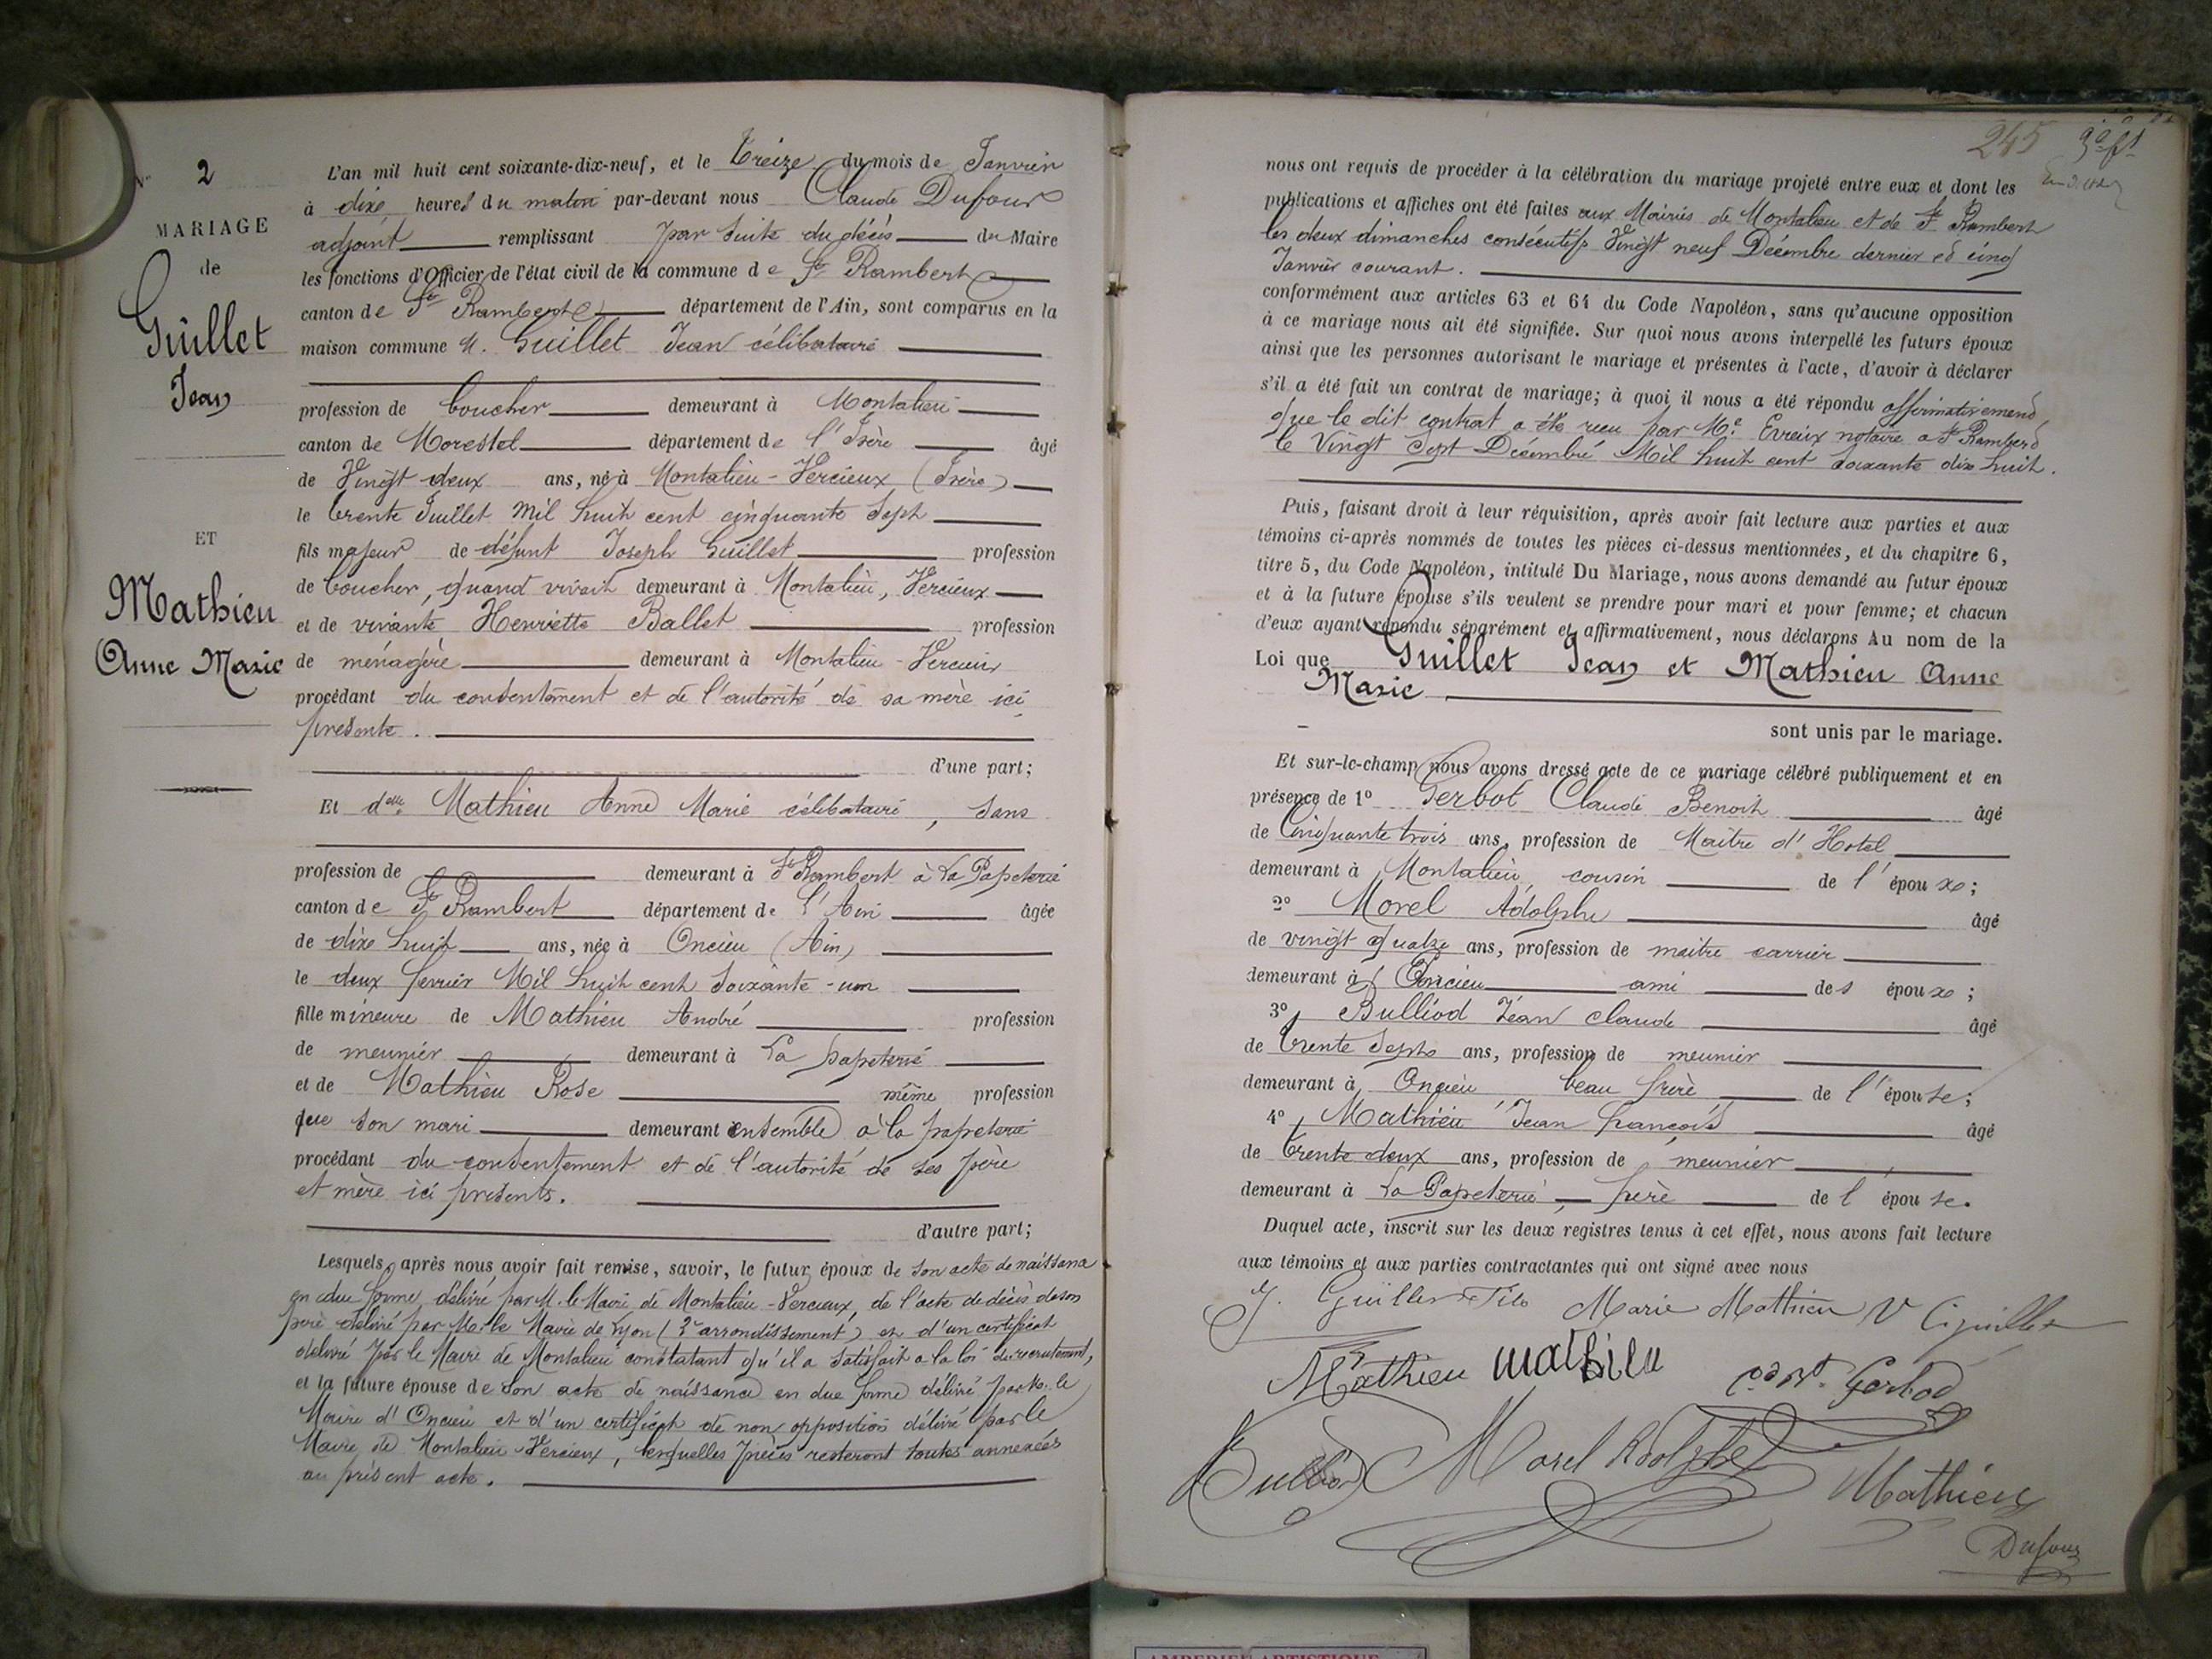 N° 2
MARIAGE
de
Guillet
Jean
ET
Mathieu
Anne Marie
L'an mil huit cent soixante-dix-neuf, et le treize du mois de Janvier
à dixe heures du matin par-devant nous Claude Dufour
adjoint remplissant par suite du décès du Maire
les fonctions d'Officier de l'état civil de la commune de St Rambert
canton de St Rambert département de l'Ain, sont comparus en la
maison commune M. Guillet Jean célibataire
profession de boucher demeurant à Montalieu
canton de Morestel département de l'Isère âgé
de Vingt deux ans, né à Montalieu-Vercieux (Isère)
le trente Juillet Mil huit cent cinquante Sept
fils majeur de défunt Joseph Guillet profession
de boucher, quand vivait demeurant à Montalieu, Vercieux
et de vivante Henriette Ballet profession
de ménagère demeurant à Montalieu-Vercieux
procédant du consentement et de l'autorité de sa mère ici
présente.
d'une part;
Et delle Mathieu Anne Marie célibataire, sans
profession de demeurant à St Rambert à La Papeterie
canton de St Rambert département de l'Ain âgée
de dixe huit ans, née à Oncieu (Ain)
le deux fevrier Mil huit cent soixante-un
fille mineure de Mathieu André profession
de meunier demeurant à La papeterie
et de Mathieu Rose même profession
que son mari demeurant ensemble à la papeterie
procédant du consentement et de l'autorité de ses père
et mère ici présents.
d'autre part;
Lesquels, après nous avoir fait remise, savoir, le futur époux de son acte de naissance
en due forme, délivré par M. le Maire de Montalieu-Vercieux, de l'acte de décès de son
père délivré par Mr. le Maire de Lyon (2e arrondissement) et d'un certificat
délivré par le Maire de Montalieu constatant qu'il a satisfait a la loi du recrutement,
et la future épouse de son acte de naissance en due forme délivré par le
Maire d'Oncieu et d'un certificat de non opposition délivré par le
Maire de Montalieu Vercieux, lesquelles pièces resteront toutes annexées
au présent acte.
245
nous ont requis de procéder à la célébration du mariage projeté entre eux et dont les
publications et affiches ont été faites aux Mairies de Montalieu et de St Rambert
les deux dimanches consécutifs Vingt neuf Décembre dernier et cinq
Janvier courant.
conformément aux articles 63 et 64 du Code Napoléon, sans qu'aucune opposition
à ce mariage nous ait été signifiée. Sur quoi nous avons interpellé les futurs époux
ainsi que les personnes autorisant le mariage et présentes à l'acte, d'avoir à déclarer
s'il a été fait un contrat de mariage; à quoi il nous a été répondu affirmativement
que le dit contrat a été reçu par Me. Evreix notaire a St Rambert
le Vingt Sept Décembre Mil huit cent soixante dix huit.
Puis, faisant droit à leur réquisition, après avoir fait lecture aux parties et aux
témoins ci-après nommés de toutes les pièces ci-dessus mentionnées, et du chapitre 6,
titre 5, du Code Napoléon, intitulé Du Mariage, nous avons demandé au futur époux
et à la future épouse s'ils veulent se prendre pour mari et pour femme; et chacun
d'eux ayant répondu séparément et affirmativement, nous déclarons Au nom de la
Loi que Guillet Jean et Mathieu Anne
Marie
sont unis par le mariage.
Et sur-le-champ nous avons dressé acte de ce mariage célébré publiquement et en
présence de 1° Gerbot Claude Benoit âgé
de Cinquante trois ans, profession de Maître d'Hotel
demeurant à Montalieu cousin de l'époux;
2° Morel Adolphe âgé
de vingt quatre ans, profession de maitre carrier
demeurant à Oncieu ami des époux;
3° Bulliod Jean Claude âgé
de trente sept ans, profession de meunier
demeurant à Oncieu beau frère de l'épouse;
4° Mathieu Jean François âgé
de trente deux ans, profession de meunier
demeurant à La Papeterie, frère de l'épouse.
Duquel acte, inscrit sur les deux registres tenus à cet effet, nous avons fait lecture
aux témoins et aux parties contractantes qui ont signé avec nous
J. Guillet Fils Marie Mathieu Ve Guillet
Mathieu Mathieu Gerbod
Bulliod Morel Adolphe Mathieu
Dufour
AMBERIEU ARTISTIQUE